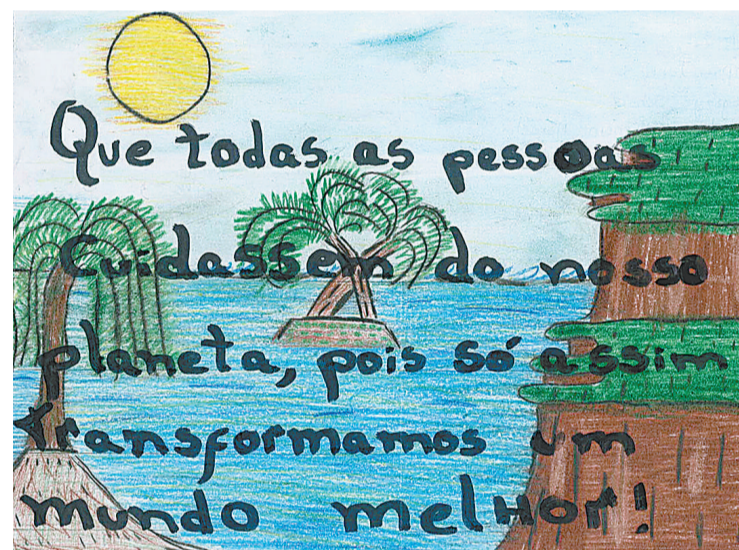 Que todas as pessoas
cuidassem do nosso
planeta, pois só assim
transformamos um
mundo melhor!